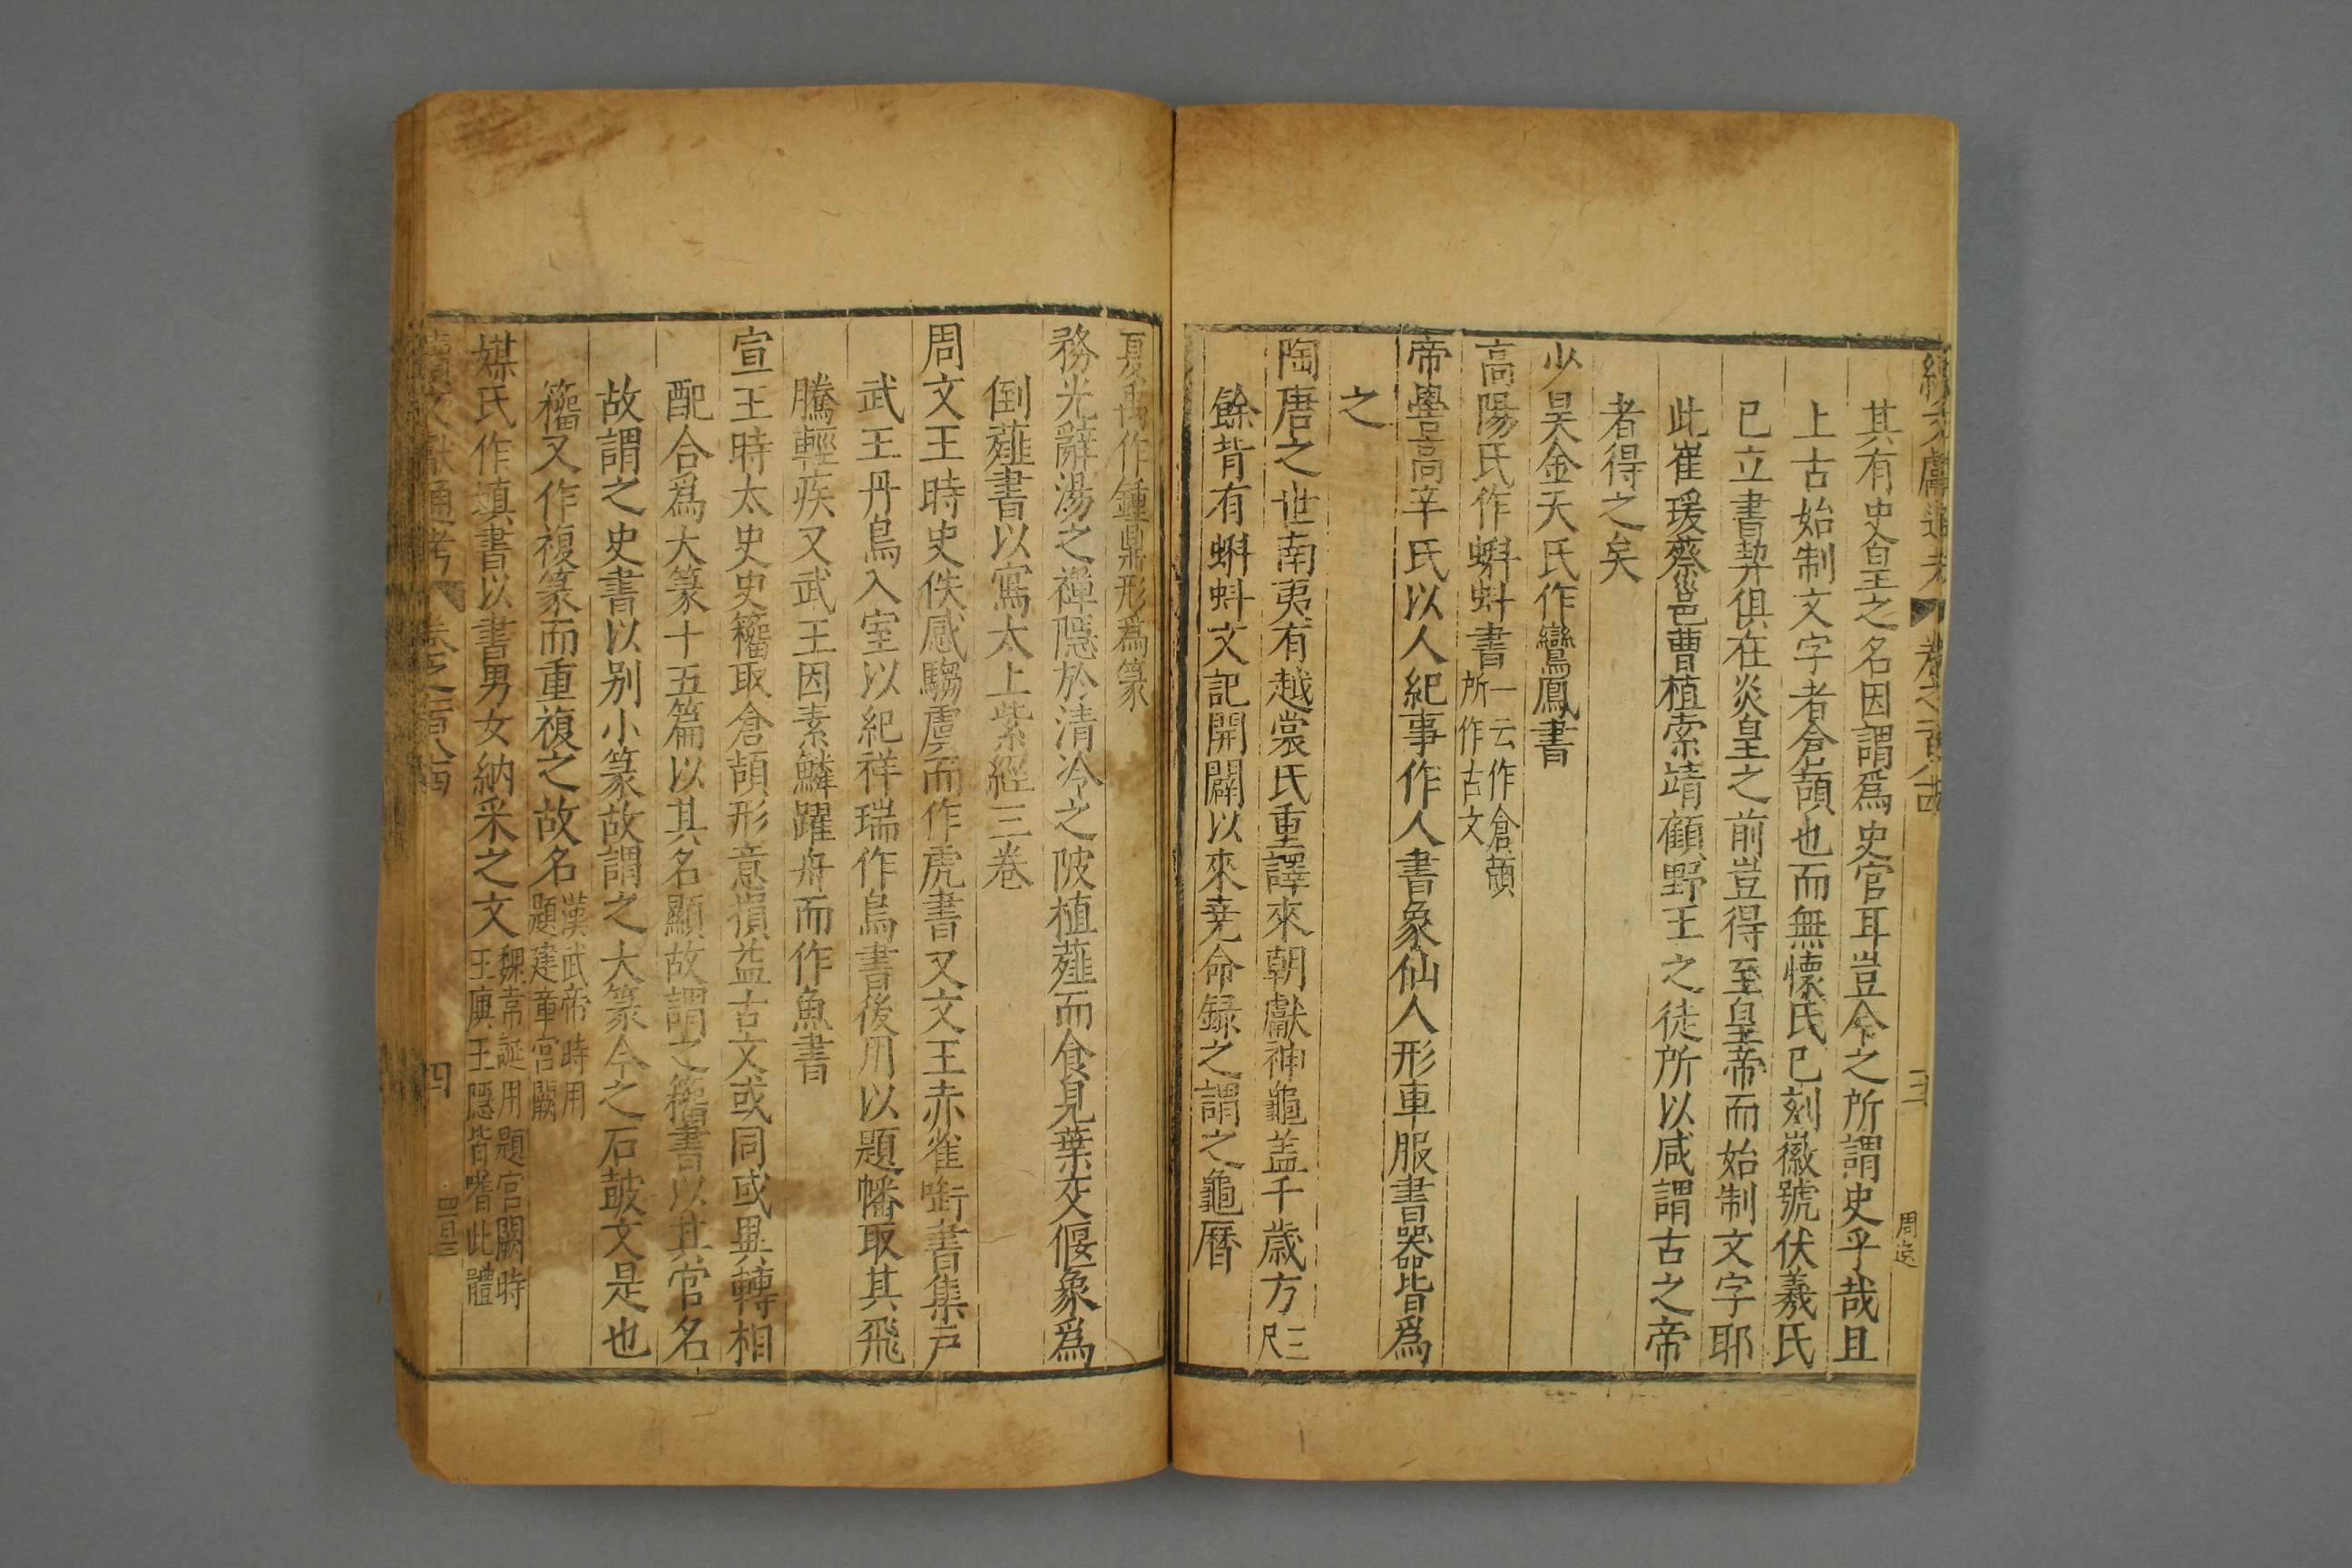 續文獻通考 卷之一百八十四 三 周遠
其有史皇之名因謂爲史官耳豈今之所謂史乎哉且
上古始制文字者倉頡也而無懷氏已刻徽號伏羲氏
已立書契俱在炎皇之前豈得至皇帝而始制文字耶
此崔瑗蔡邕曹植索靖顧野王之徒所以咸謂古之帝
者得之矣
少昊金天氏作鸞鳳書
高陽氏作蝌蚪書一云作倉頡所作古文
帝嚳高辛氏以人紀事作人書象仙人形車服書器皆爲
之
陶唐之世南夷有越裳氏重譯來朝獻神龜盖千歲方三尺
餘背有蝌蚪文記開闢以來堯命録之謂之龜曆
夏禹作鍾鼎形爲篆
務光辭湯之禪隱於清冷之陂植薤而食見葉交偃象爲
倒薤書以寫太上紫經三卷
周文王時史佚感騶虞而作虎書又文王赤雀啣書集戶
武王丹鳥入室以紀祥瑞作鳥書後用以題幡取其飛
騰輕疾又武王因素鱗躍舟而作魚書
宣王時太史史籀取倉頡形意損益古文或同或異轉相
配合爲大篆十五篇以其名顯故謂之籀書以其官名
故謂之史書以别小篆故謂之大篆今之石鼓文是也
籀又作複篆而重複之故名漢武帝時用題建章宮闕
媒氏作塡書以書男女納采之文魏韋誕用題宮闕時王廙王隱皆嗜此體
續文獻通考 卷之一百八十四 四